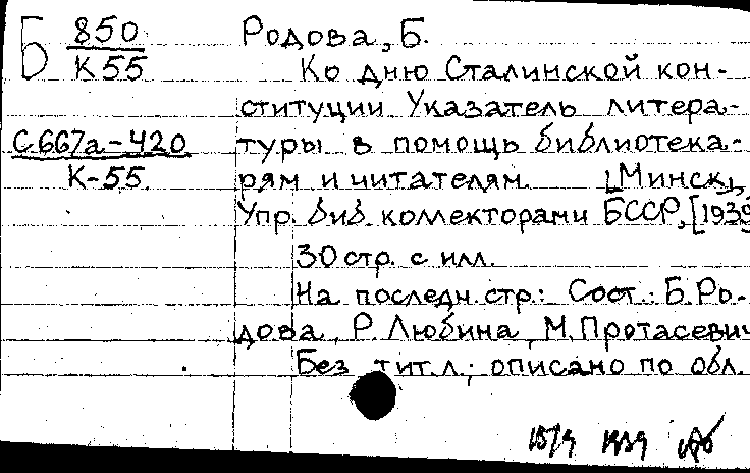 Б 850
К 55
С667а-420
К-55.
Родова, Б.
Ко дню Сталинской кон-
ституции. Указатель литера-
туры в помощь библиотека-
рям и читателям. [Минск],
Упр. биб. коллекторами БССР, [1939
30 стр. с илл.
На последн. стр.: Сост.: Б. Ро-
дова, Р. Любина, М. Протасевич
Без тит. л.; описано по обл.
1939